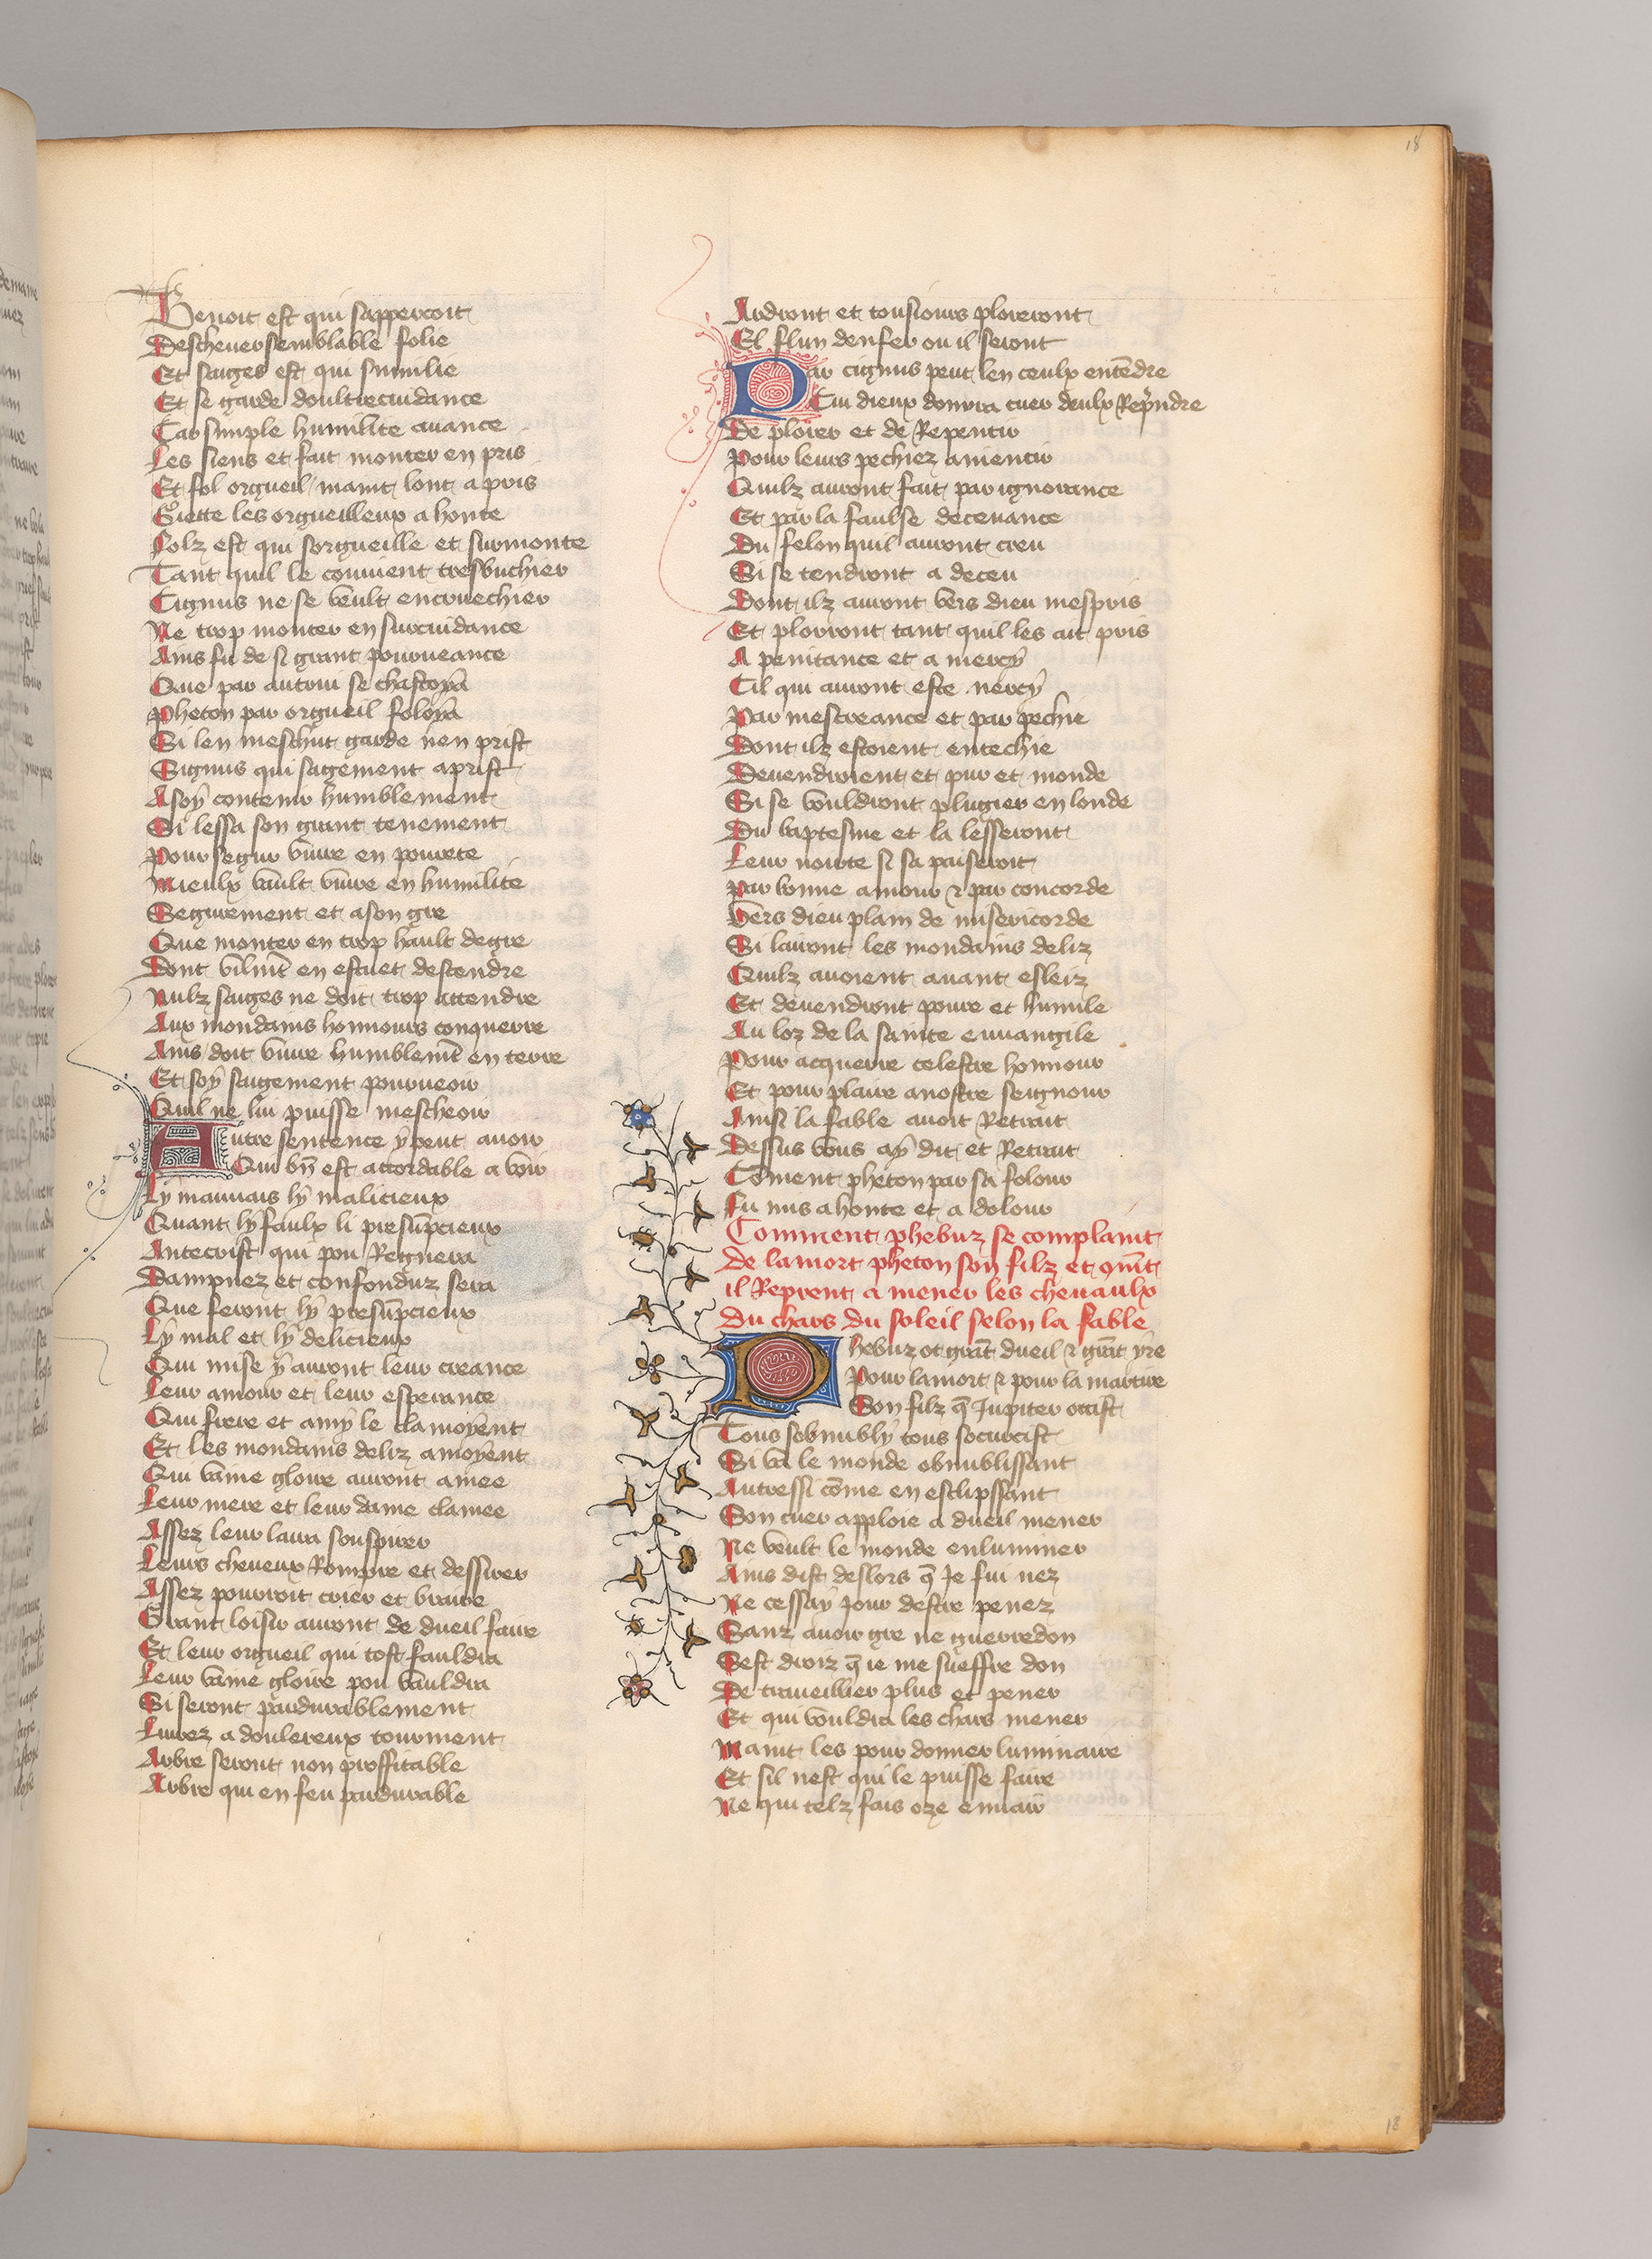 18
Benoit est qui sappercoit
Descheuer semblable folie
Et saiges est qui sumilie
Et se garde doultrecuidance
Car simple humilite auance
Les siens et fait monter en pris
Et fol orgueil maint lont apris
Giette les orgueilleux a honte
Folz est qui sorgueille et surmonte
Tant quil le conuient tresbuchier
Cignus ne se veult encruechier
Ne trop monter en surcuidance
Ains fu de si grant pourueance
Que par autrui se chastoya
Pheton par orgueil foloya
Si len meschut garde nen prist
Signus qui sagement aprist
A soy contenir humblement
Si lessa son grant tenement
Pour segur viure en pourete
Mieulx vault viure en humilite
Segurement et a son gre
Que monter en trop hault degre
Dont vilmēt en estuet descendre
Nulz saiges ne doit trop attendre
Aux mondains honnours conquerre
Ains doit viure humblemēt en terre
Et soy saigement pourueoir
Quil ne lui puisse mescheoir
Autre sentence y peut auoir
Qui bn̄ est accordable a voir
Ly mauuais ly malicieux
Quant ly faulx li presūpcieux
Antecrist qui pou Regnera
Dampnez et confonduz sera
Que feront ly presūpcieux
Ly mal et ly delicieux
Qui mise y auront leur creance
Leur amour et leur esperance
Qui frere et amy le clamoyent
Et les mondains deliz amoyent
Qui vaine gloire auront amee
Leur mere et leur dame clamee
Assez leur laira souspirer
Leurs cheueux Rompre et dessirer
Assez pourroit crier et braire
Grant loisir auront de dueil faire
Et leur orgueil qui tost fauldra
Leur vaine gloire pou vauldra
Si seront pardurablement
Liurez a doulereux tourment
Arbre seront non proffitable
Arbre qui en feu pardurable
Ardront et tousiours ploreront
El flun denfer ou il seront
Par cignus peut len ceulx entēdre
Cui dieux donrra cuer deulx Rep̄ndre
De plorer et de Repentir
Pour leurs pechiez amentir
Quilz auront fait par ignorance
Et par la faulse deceuance
Du felon quil auront creu
Si se tendront a deceu
Dont ilz auront vers dieu mespris
Et plorront tant quil les ait pris
A penitance et a mercy
Cil qui auront este nercy
Par mescreance et par pechie
Dont ilz estoient entechie
Deuendroient et pur et monde
Si se vouldront plugier en londe
Du baptesme et la lesseront
Leur noirte si sa paiseront
Par bonne amour ⁊ par concorde
Vers dieu plain de misericorde
Si lairont les mondains deliz
Quilz auoient auant esleiz
Et deuendront poure et humile
Au loz de la sainte euuangile
Pour acquerre celestre honnour
Et pour plaire a nostre seignour
Ainsi la fable auoit Retrait
Dessus vous ay dit et Retrait
Coment pheton par sa folour
Fu mis a honte et a dolour
Comment phebuz se complaint
de la mort pheton son filz et qm̄t
il Reprent a mener les cheuaulx
du chars du soleil selon la fable
Phebuz ot grāt dueil ⁊ grāt yre
Pour la mort ⁊ pour la martire
Son filz q̄ Jupiter occist
Tous sobnubly tous socurcist
Si va le monde obnublissant
Autressi cōme en esclipssant
Son cuer apploie a dueil mener
Ne veult le monde enluminer
Ains dist deslors q̄ Je fui nez
Ne cessay Jour destre penez
Sanz auoir gre ne guerredon
Sest droiz q̄ ie me sueffre don
De traueillier plus et pener
Et qui vouldra les chars mener
Maint les pour donner luminaire
Et sil nest qui le puisse faire
Ne qui telz fais oze enuair
18